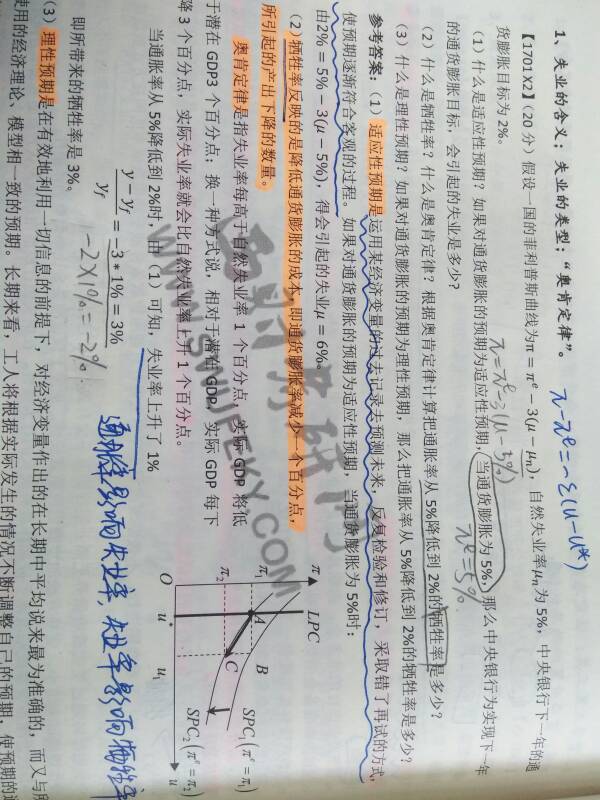 1、失业的含义；失业的类型；“奥肯定律”。
π-πᵉ=-ε(u-u*)
【1701X2】(20 分) 假设一国的菲利普斯曲线为π = πᵉ − 3(μ − μₙ)，自然失业率μₙ为 5%，中央银行下一年的通
货膨胀目标为 2%。
π=πᵉ-3(μ-5%)
πᵉ=5%
(1) 什么是适应性预期？如果对通货膨胀的预期为适应性预期，当通货膨胀为 5%，那么中央银行为实现下一年
的通货膨胀目标，会引起的失业是多少？
(2) 什么是牺牲率？什么是奥肯定律？根据奥肯定律计算把通胀率从 5%降低到 2%的牺牲率是多少？
(3) 什么是理性预期？如果对通货膨胀的预期为理性预期，那么把通胀率从 5%降低到 2%的牺牲率是多少？
参考答案：(1) 适应性预期是运用某经济变量的过去记录去预测未来，反复检验和修订，采取错了再试的方式，
使预期逐渐符合客观的过程。如果对通货膨胀的预期为适应性预期，当通货膨胀为 5%时：
由2% = 5% − 3(μ − 5%)，得会引起的失业μ = 6%。
(2) 牺牲率反映的是降低通货膨胀的成本，即通货膨胀率减少一个百分点，
所引起的产出下降的数量。
奥肯定律是指失业率每高于自然失业率 1 个百分点，实际 GDP 将低
于潜在 GDP3 个百分点；换一种方式说，相对于潜在 GDP，实际 GDP 每下
降 3 个百分点，实际失业率就会比自然失业率上升 1 个百分点。
当通胀率从 5%降低到 2%时，由（1）可知，失业率上升了 1%
y − y_f
y_f
= −3 * 1% = 3%
-2×1%=-2%
即所带来的牺牲率是 3%。
通胀率影响失业率，失业率影响牺牲率
(3) 理性预期是在有效地利用一切信息的前提下，对经济变量作出的在长期中平均说来最为准确的，而又与所
使用的经济理论、模型相一致的预期。长期来看，工人将根据实际发生的情况不断调整自己的预期，使预期的通
π
LPC
π₁
A
B
π₂
C
SPC₁(πᵉ = π₁)
SPC₂(πᵉ = π₂)
O
u*
u₁
u